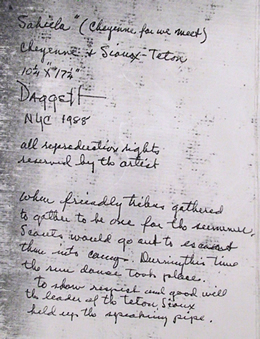 Sahiela" (Cheyenne for we meet)
Cheyenne & Sioux-Teton
10¼" X 17¼"
Daggett
NYC 1988
all reproduction rights
reserved by the artist
when friendly tribes gathered
to gather to be one for the summer,
Scouts would go out to
them into camp. Durring this time
the sun danse took place.
to show respect and good will
the leader of the Teton, Sioux
held up the speaking pipe.